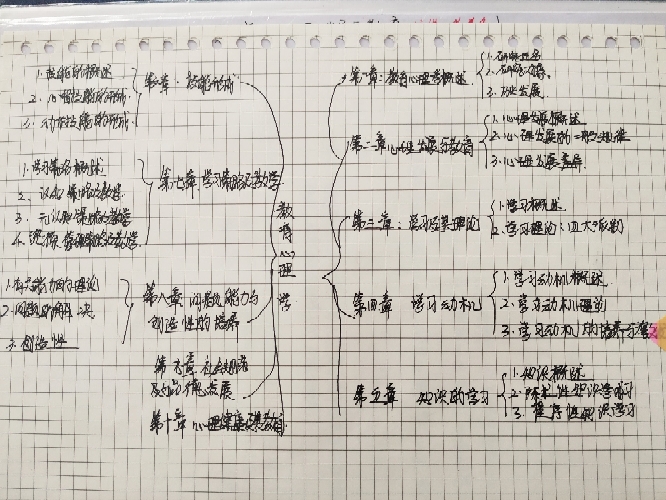 教育心理学
第一章：教育心理学概述
3. 历史发展
第二章 心理发展与教育
1. 心理发展概述
2. 心理发展的一般规律
3. 心理发展差异
第三章：学习经典理论
1. 学习概述
2. 学习理论
第四章 学习动机
1. 学习动机概述
2. 学习动机理论
3. 学习动机的培养
第五章 知识的学习
1. 知识概述
2. 陈述性知识学习
3. 程序性知识学习
第六章：技能形成
1. 技能的概述
2. 心智技能的形成
3. 动作技能的形成
第七章：学习策略及教学
1. 学习策略概述
2、认知策略的教学
3. 元认知策略的教学
4. 资源管理策略的教学
第八章 问题解决能力与
创造性的培养
1. 有关能力的理论
2. 问题的解决
3. 创造性
第九章 社会规范
及品德发展
第十章 心理健康及其教育